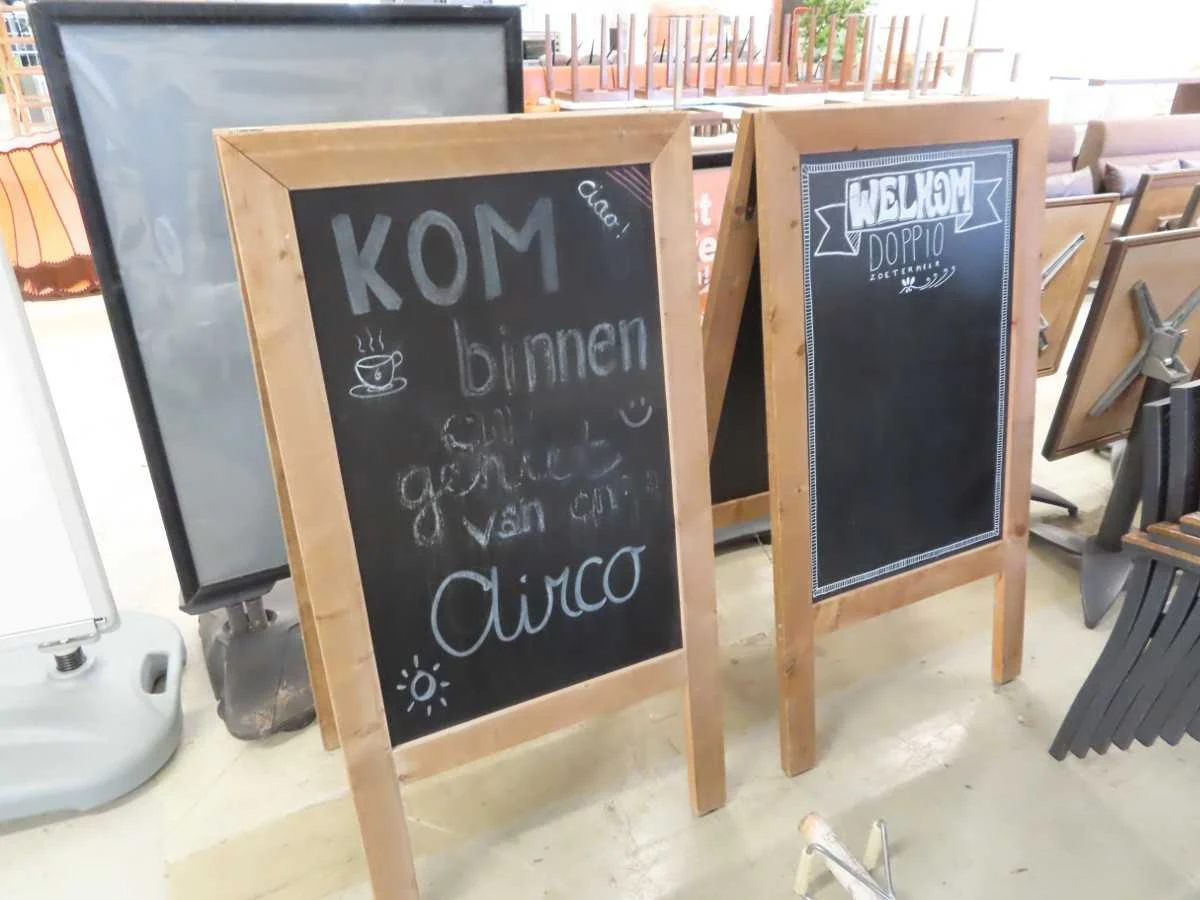 ciao!
KOM
binnen
en
geniet
van onze
airco
WELKOM
DOPPIO
ZOETERMEER
st